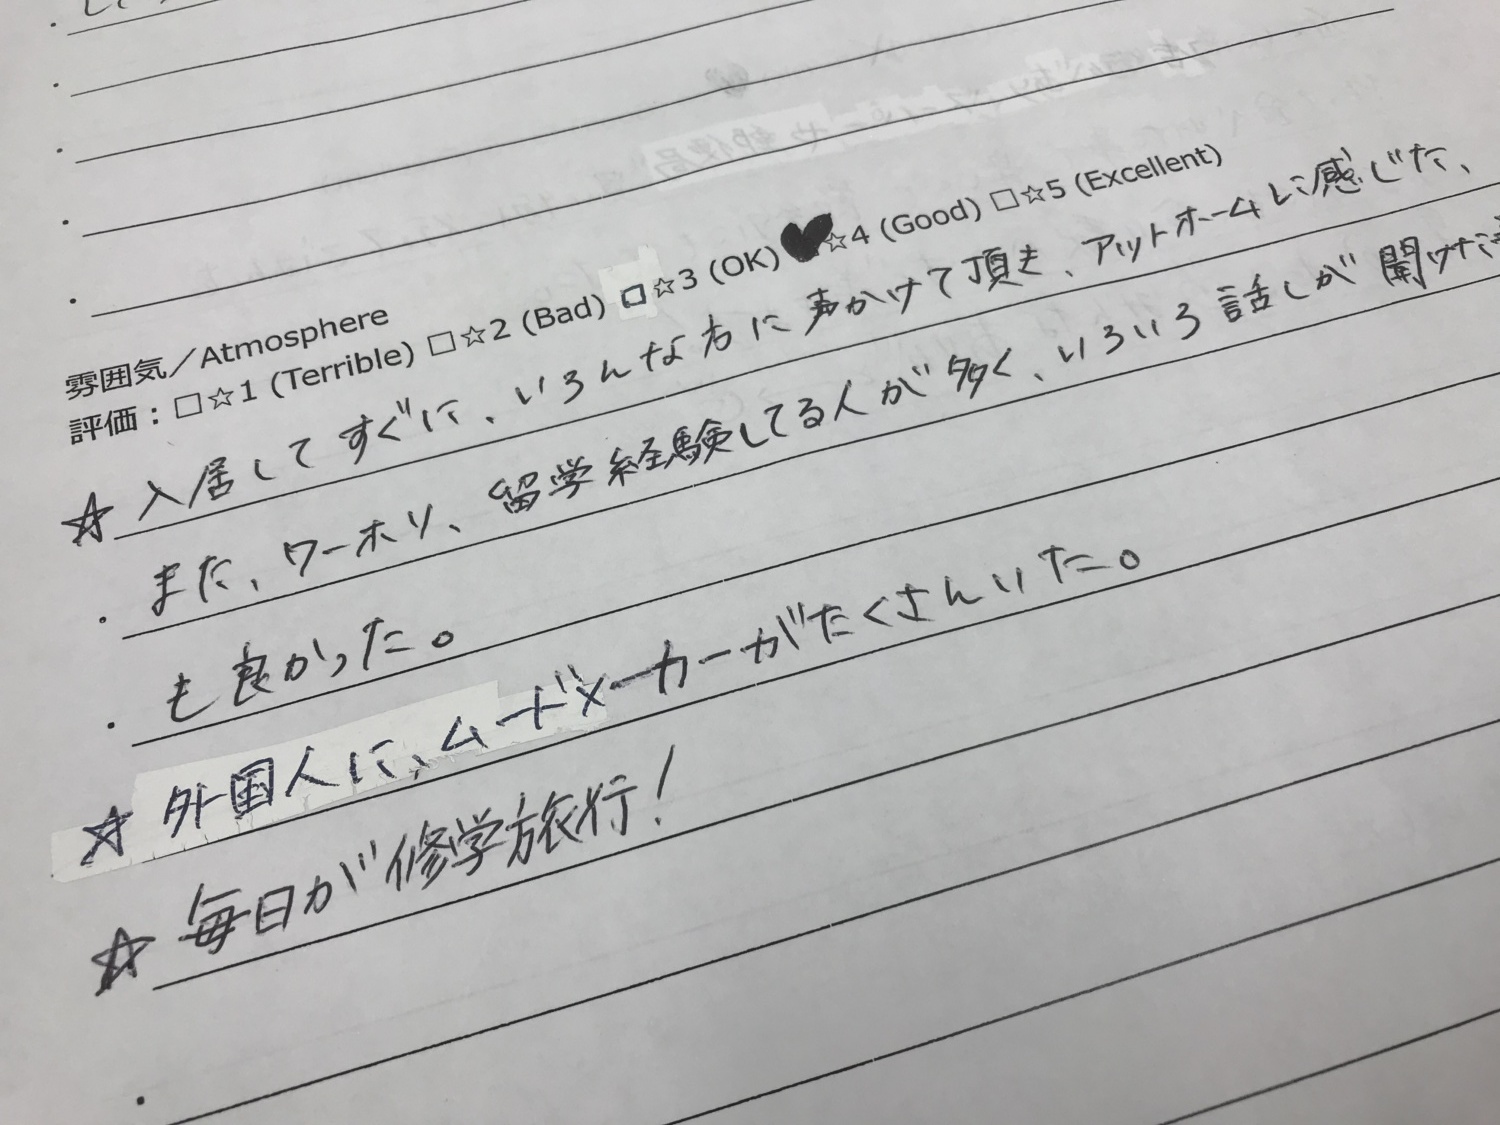 雰囲気／Atmosphere
評価：□☆1 (Terrible) □☆2 (Bad) □☆3 (OK) ♥☆4 (Good) □☆5 (Excellent)
☆ 入居してすぐに、いろんな方に声かけて頂き、アットホームに感じた、
・ また、ワーホリ、留学経験してる人が多く、いろいろ話しが聞けた
・ も良かった。
☆ 外国人に、ムードメーカーがたくさんいた。
☆ 毎日が修学旅行！